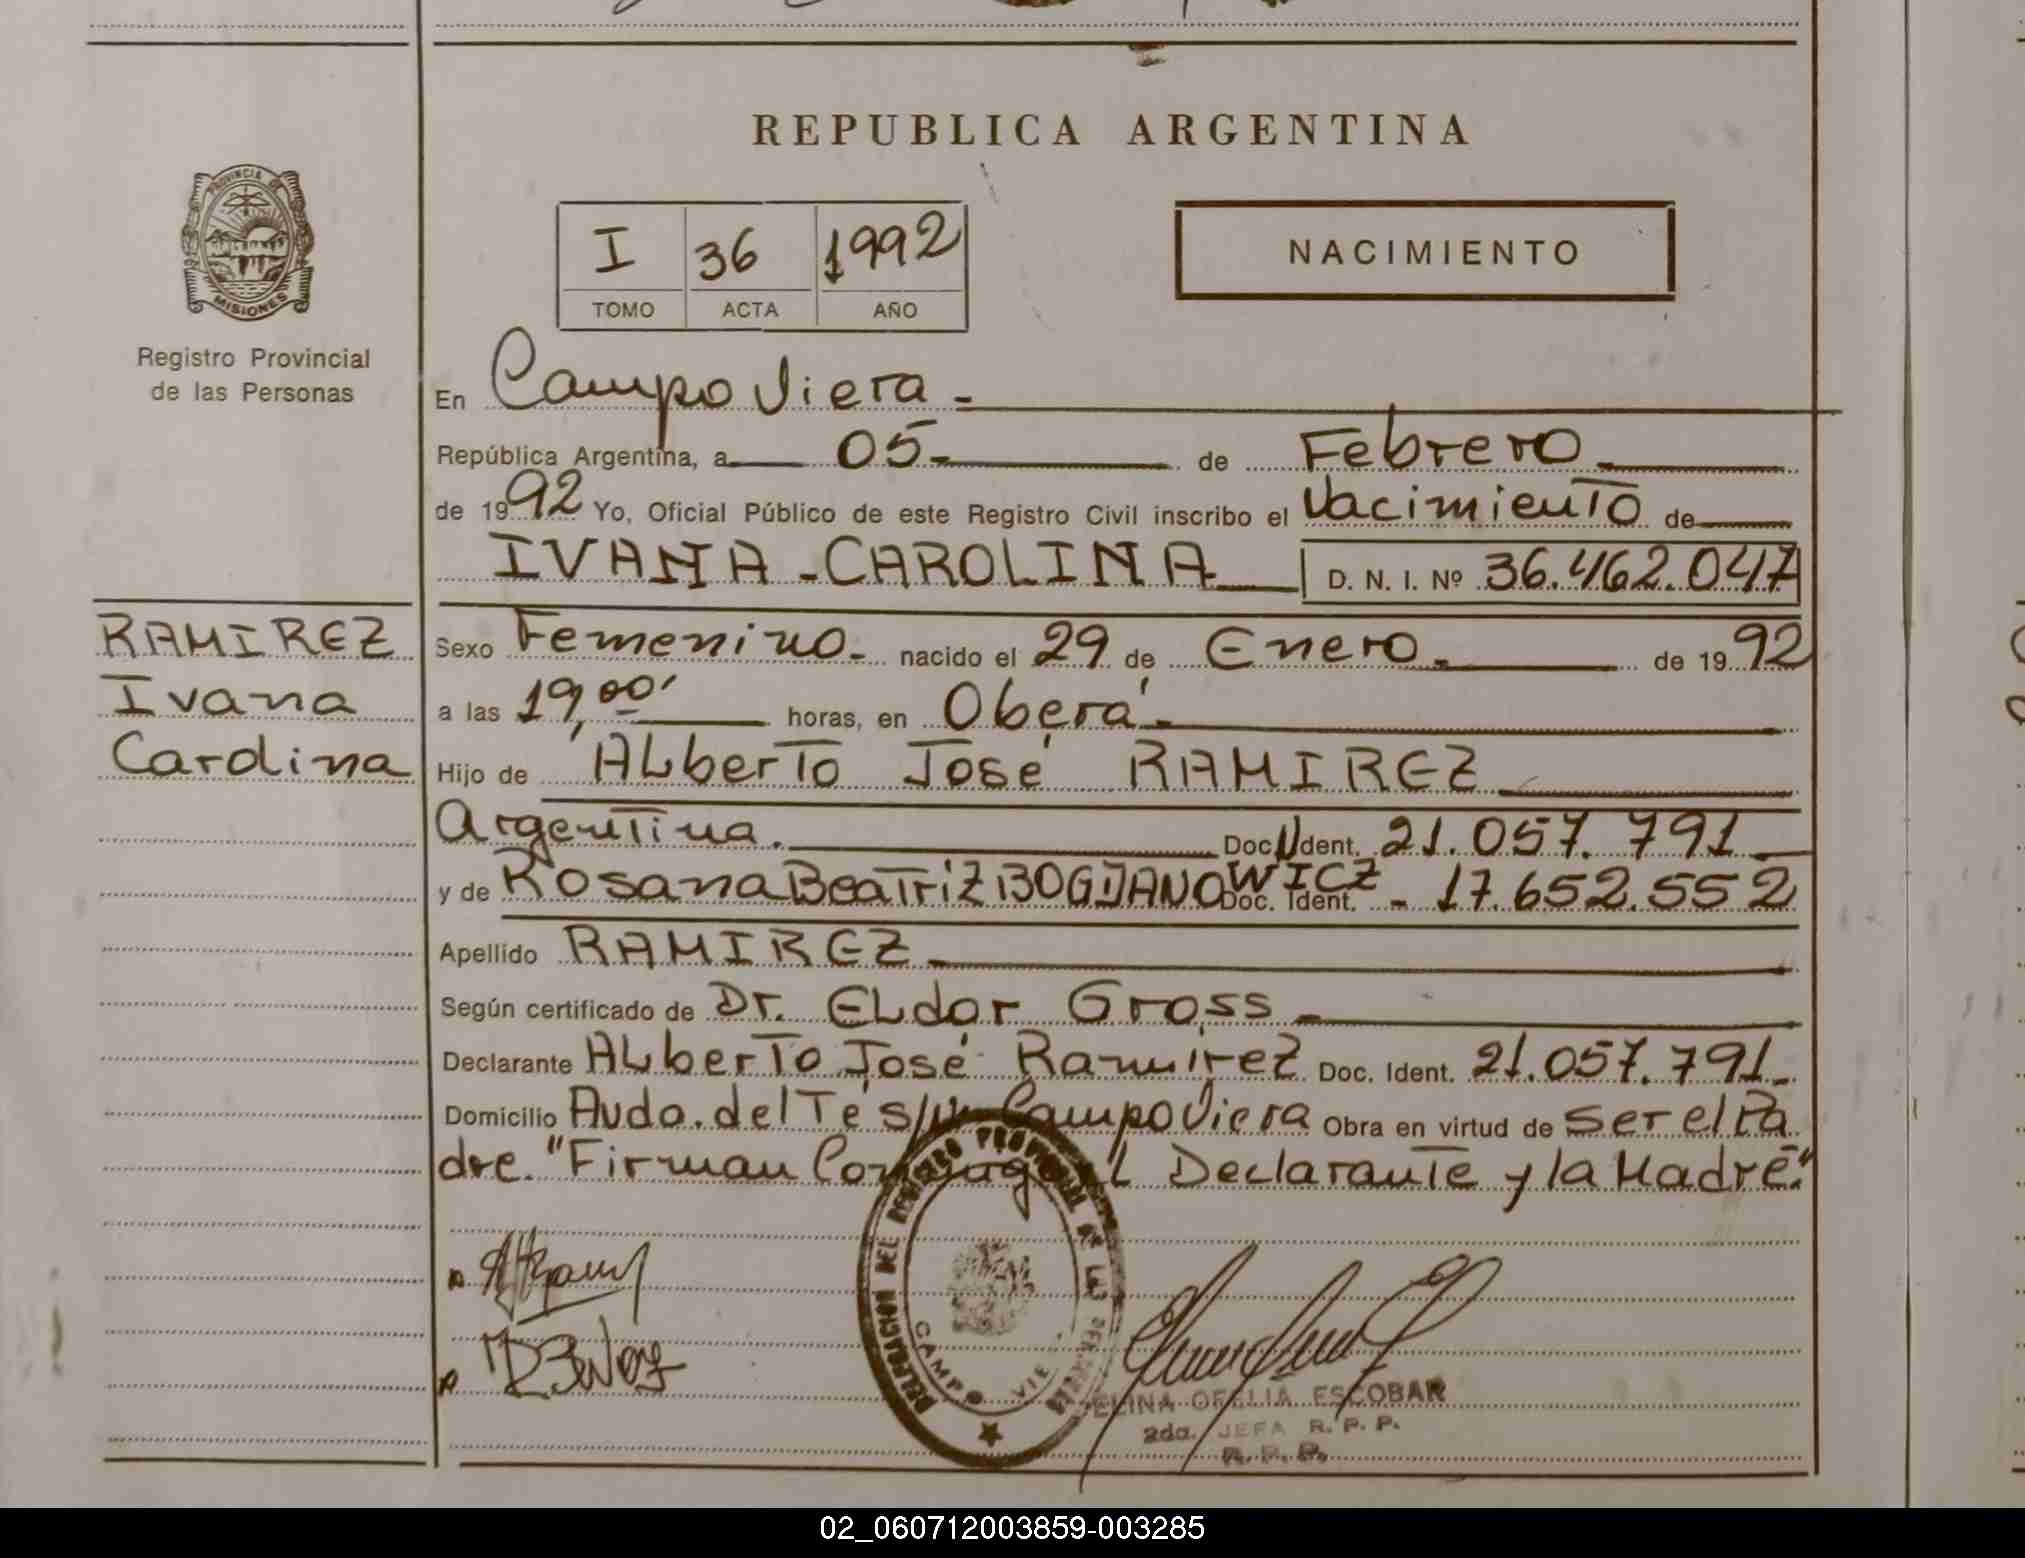 REPUBLICA ARGENTINA
PROVINCIA DE
MISIONES
Registro Provincial
de las Personas
I 36 1992
TOMO ACTA AÑO
NACIMIENTO
En Campo Viera -
República Argentina, a 05 - de Febrero
de 1992 Yo, Oficial Público de este Registro Civil inscribo el Nacimiento de
IVANA - CAROLINA D. N. I. Nº 36.462.047
RAMIREZ
Ivana
Carolina
Sexo Femenino - nacido el 29 de Enero - de 1992
a las 19,00' horas, en Oberá -
Hijo de Alberto José RAMIREZ
Argentina. Doc. Ident. 21.057.791
y de Rosana Beatriz BOGDANOWICZ Doc. Ident. - 17.652.552
Apellido RAMIREZ
Según certificado de Dr. Eldor Gross
Declarante Alberto José Ramírez Doc. Ident. 21.057.791 -
Domicilio Avda. del Té s/n Campo Viera Obra en virtud de ser el Pa
dre. "Firman Conmigo el Declarante y la Madre"
DELEGACION DEL REGISTRO PROVINCIAL DE LAS PERSONAS
CAMPO VIE
ELINA OFELIA ESCOBAR
2da. JEFA R. P. P.
R. P. P.
02_060712003859-003285